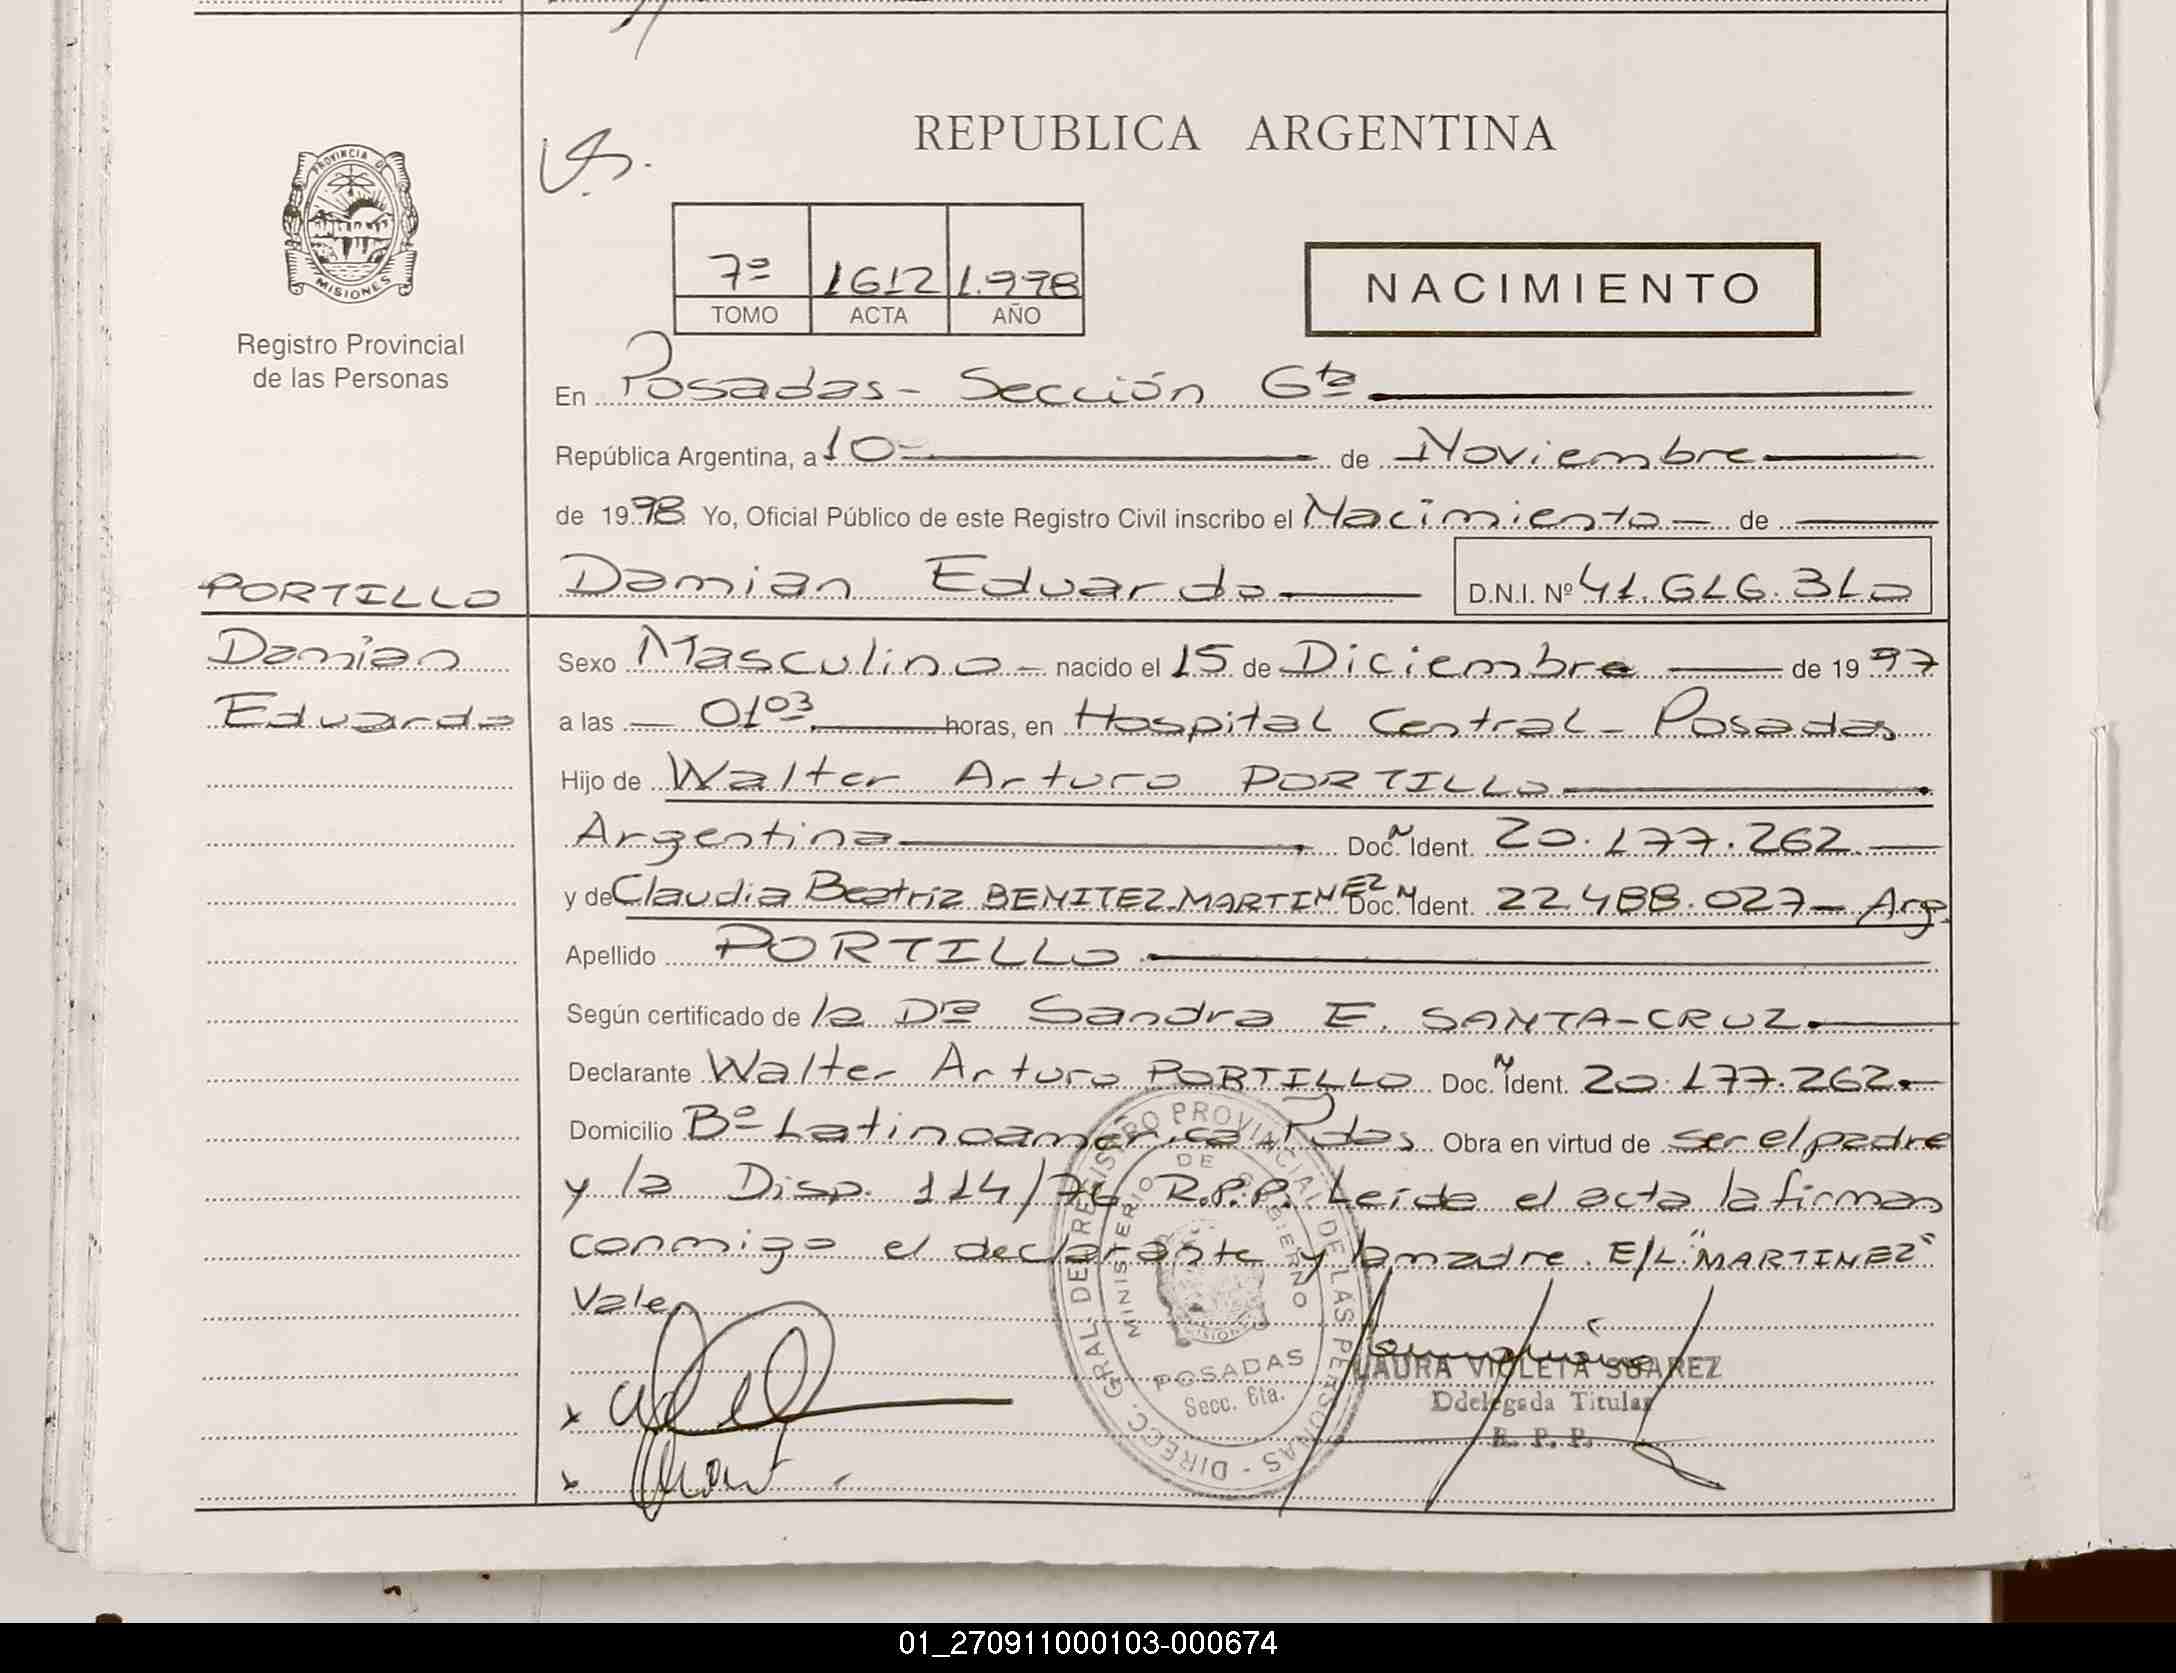 REPUBLICA ARGENTINA
PROVINCIA DE
MISIONES
Registro Provincial
de las Personas
7º 1612 1.998
TOMO ACTA AÑO
NACIMIENTO
En Posadas - Sección 6ta
República Argentina, a 10 de Noviembre
de 1998 Yo, Oficial Público de este Registro Civil inscribo el Nacimiento de
PORTILLO
Damian Eduardo D.N.I. Nº 41.616.310
Damian
Eduardo
Sexo Masculino - nacido el 15 de Diciembre de 1997
a las 01º³ horas, en Hospital Central - Posadas
Hijo de Walter Arturo PORTILLO
Argentina Doc. Ident. 20.177.262
y de Claudia Beatriz BENITEZ MARTINEZ Doc. Ident. 22.488.027 - Arg.
Apellido PORTILLO
Según certificado de la Dra Sandra E. SANTA-CRUZ
Declarante Walter Arturo PORTILLO Doc. Ident. 20.177.262
Domicilio Bº Latinoamerica Pdas. Obra en virtud de ser el padre
y la Disp. 114/76 R.P.P. Leída el acta la firman
conmigo el declarante y la madre. E/L "MARTINEZ"
Vale
DIRECC. GRAL. DEL REGISTRO PROVINCIAL DE LAS PERSONAS -
MINISTERIO DE GOBIERNO
MISIONES
POSADAS
Secc. 6ta.
LAURA VIOLETA SUAREZ
Ddelegada Titular
R. P. P.
01_270911000103-000674